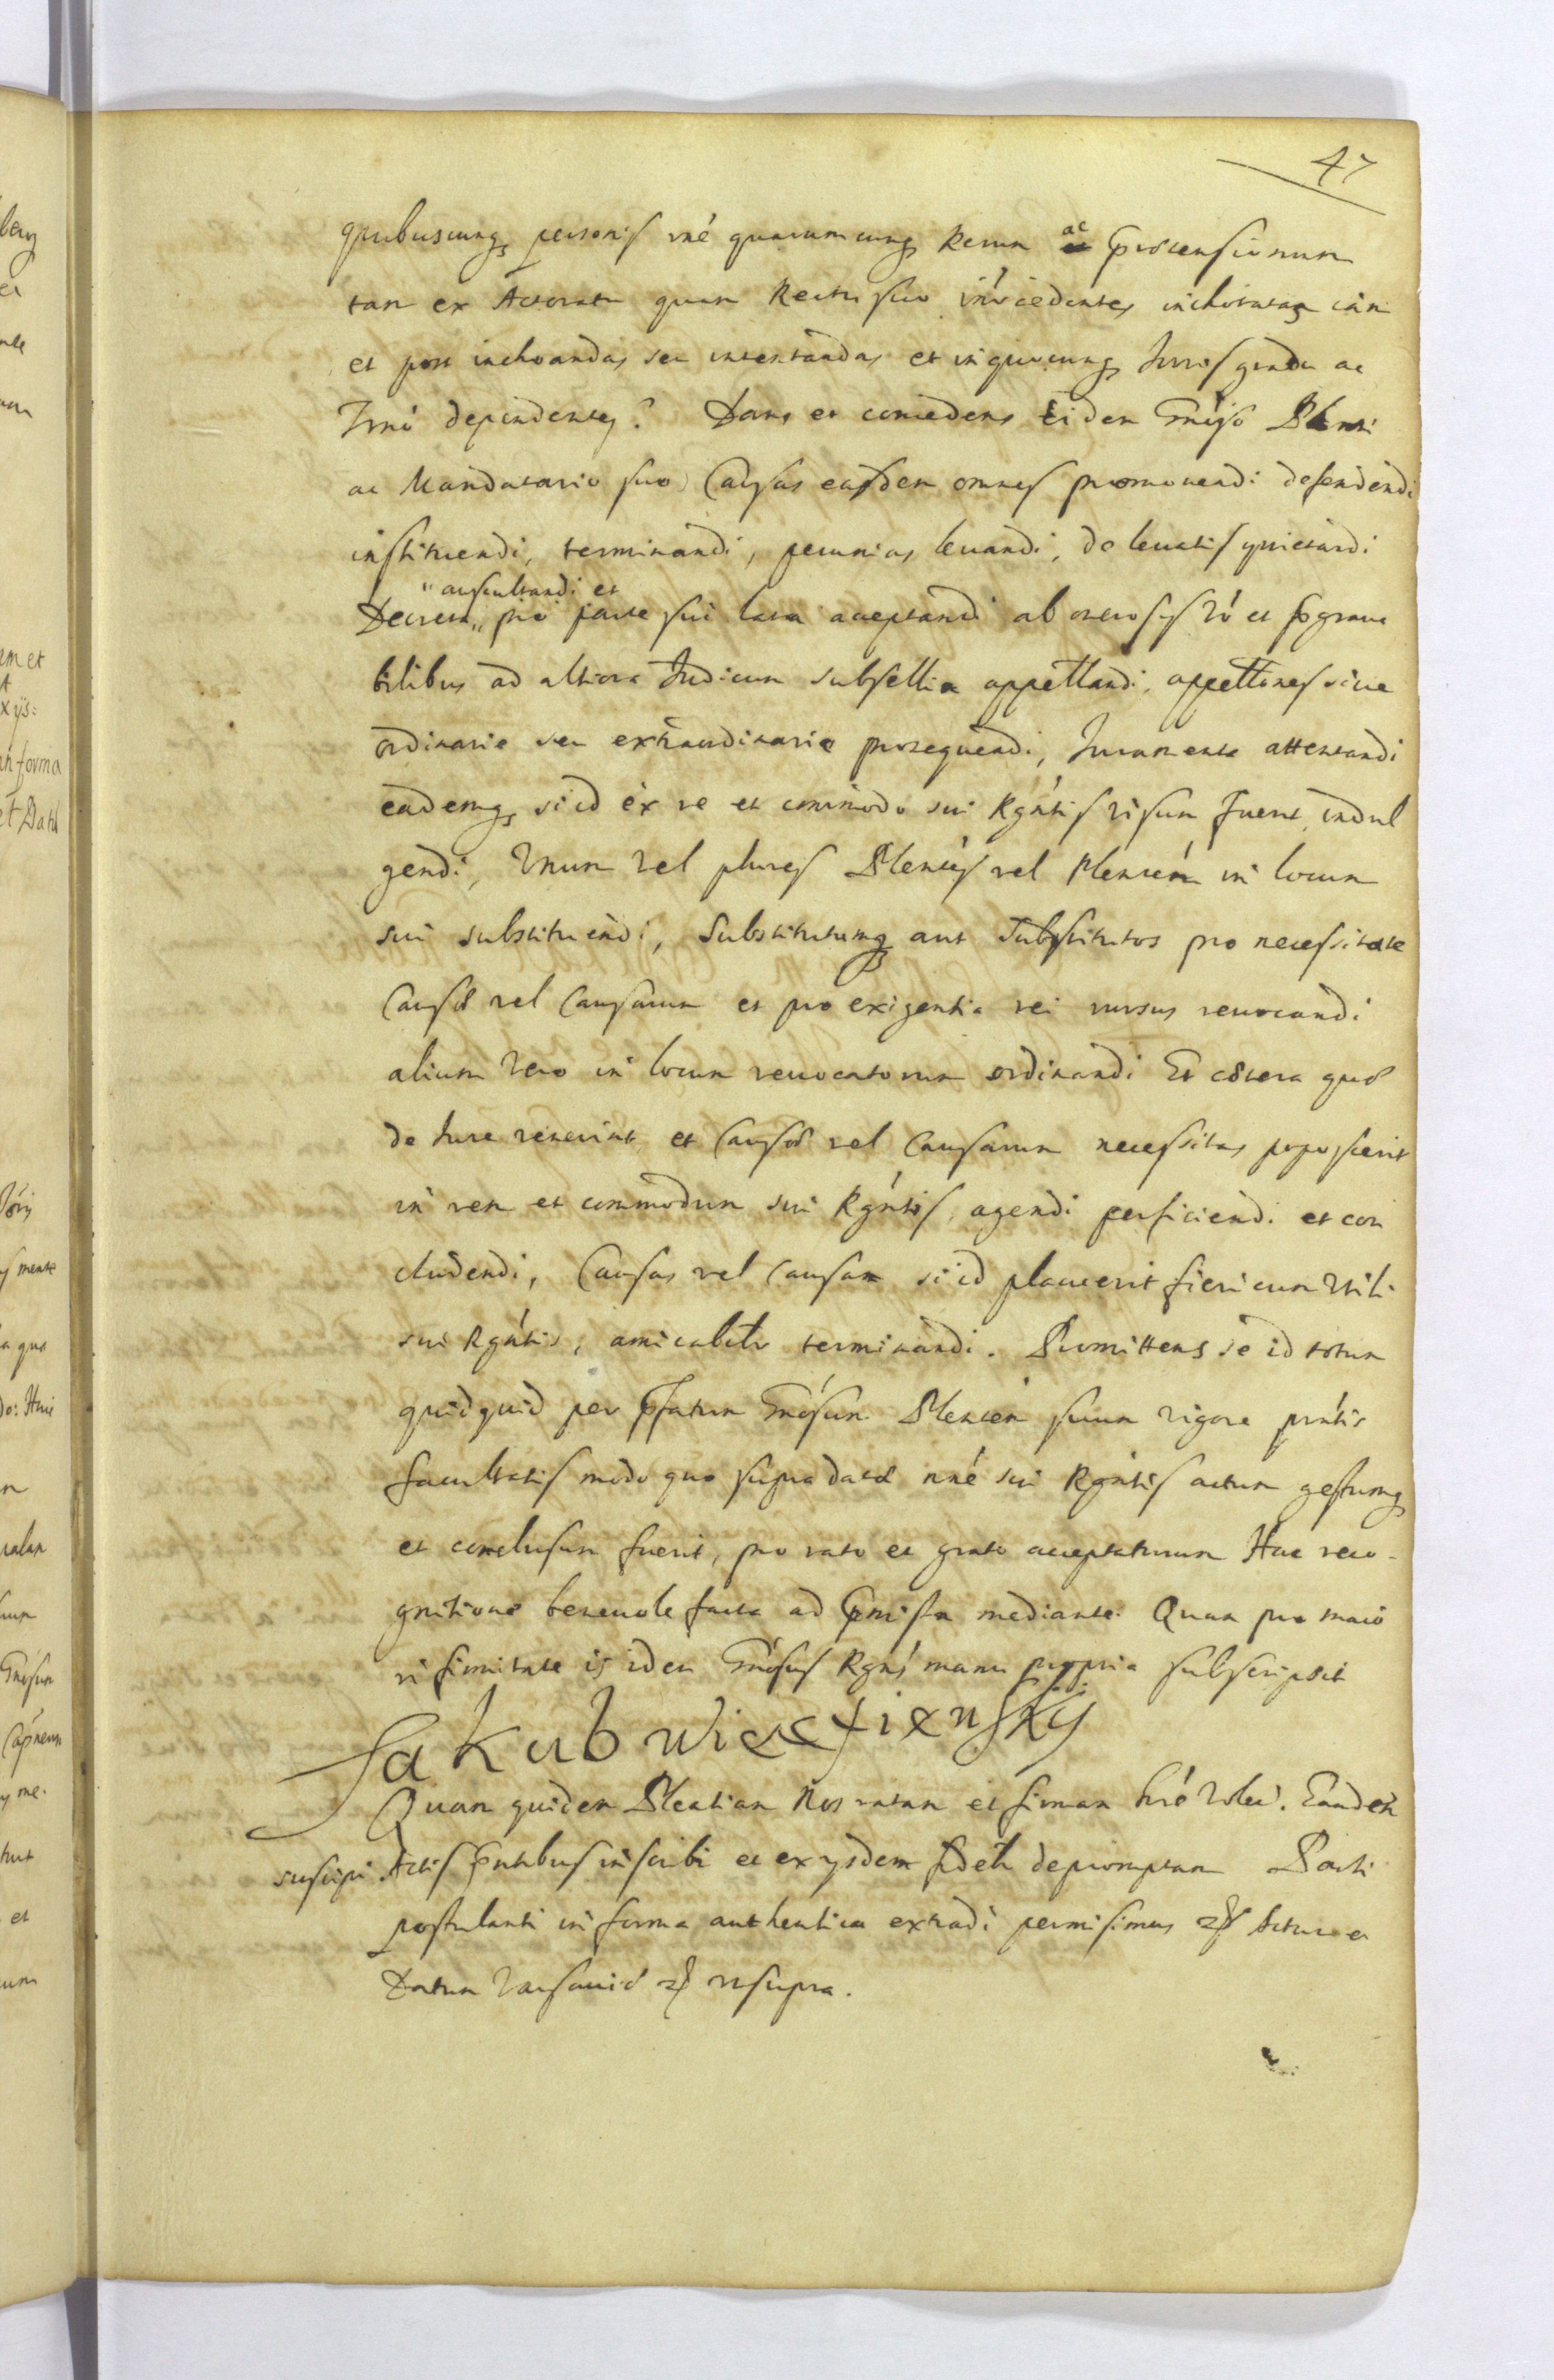 47
quibuscunq personis rné quarumcunq Rerum ac Prætensionum
tam ex Actoratu quam Reatu suo procedentes inchoatas iam
et post inchoandas seu intentandas et in quocunq Juris gradu ac
Trnó dependentes? Dans et concedens Eidem Gnöso Plenti
ac Mandatario suo Causas easdem omnes promouendi defendendi
instituendi, terminandi, pecunias leuandi, de leuatis quietandi
auscultandi et
Decreta pro parte sui lata acceptandi ab onerosis vó et se graua
bilibus ad altiora Judicum subsellia appellandi, appellones siue
ordinarie seu extraordinarie prosequendi, Juramenta attentandi
eademq si id ex re et commodo sui Rgntis visum fuerit indul
gendi, Vnum vel plures Plentes vel Plentem in locum
sui substituendi, Substitutumq aut Substitutos pro necessitate
Causæ vel Causarum et pro exigentia rei rursus reuocandi
alium vero in locum reuocatorum ordinandi Et cætera quæ
de Jure venerint et Causæ vel Causarum necessitas poposcerit
in rem et commodum sui Rgntis, agendi perficiendi et con
cludendi, Causas vel Causam si id placuerit fieri cum vtili
sui Rgntis, amicabilr terminandi. Promittens se id totum
quidquid per Pfatum Gnösum Plentem suum vigore pntis
facultatis modo quo supra datæ nné sui Rgntis actum gestumq
et conclusum fuerit, pro rato et grato accepturum Hac reco-
gnitione beneuole facta ad Pmissa mediante. Quam pro maio
ri firmitate is idem Gnösus Rgns manu propria subscripsit
Jakub
Quam quidem Plentiam Nos ratam et firmam hré volu. Eandem
suscipi Actis Pntibus inscribi et ex ysdem fidelr depromptam Parti
postulanti in forma authentica extradi permisimus Actum et
Datum Varsauiæ vt supra.